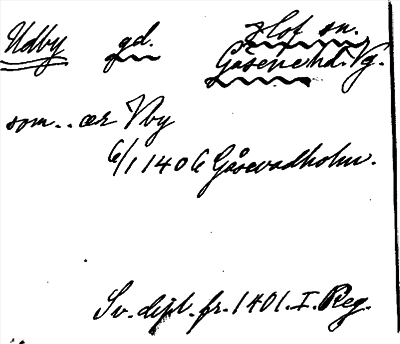 Udby gd. Olof sn.
Gåsene hd. Vg.
som.. ær Vby
6/1 1406 Gåsevadholm.
Sv. dipl. fr. 1401. I. Reg.